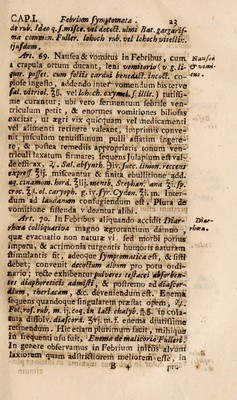 CAP.I. Febrium symptomata. 23
de rub. Idæo q. s. misce. vel decoct. ulmi Bat. gargaris-
ma commun. Fuller. lohoch rub. vel lohoch vitellin.
ejusdem.
Art. 69. Nausea & vomitus in Febribus, cum
a crapula ortum ducant, leni vomitorio v. g. li-
quor. posset. cum foliis cardui benedict. incoct. co-
piose ingesto, addendo inter vomendum his terve
sal. vitriol. ʒß. vel
me curantur; ubi vero fermentum febrile ven-
triculum petit, & enormes vomitiones biliosas
excitat, ut ægri vix quicquam vel medicamenti
vel alimenti retinere valeant, imprimis conve-
nit, jusculum tenuissimum pulli affatim ingere-
re, & postea remediis appropriatis tonum ven-
triculi laxatum firmare;
dendis ex. ℞. Sal. absynth.
express. ʒij. misceantur & finita ebullitione add.
aq. cinamom. hord. ʒiij. menth. Stephan.
croc. ʒj. ol. caryoph. g. iv. syr.
dum ad laudanum confugiendum est. Plura de
vomitione sistenda v deantur alibi.
Art. 70. In Febribus aliquando accidit Diar-
rhœa colliquativa magno ægrotantium damno,
quæ evacuatio non naturæ vi, sed morbi potius
impetu, & acrimonia turgentis humoris naturam
stimulantis fit, adeoque symptomatica est, & sisti
debet; convenit decoctum album pro potu ordi-
nario; recte exhibentur pulveres testacei absorben-
tes diaphoreticis admisti, & postremo ad diascor-
dium, theriacam, &c. deveniendum est. Enema
sequens quandoque singularem præstat opem,
Fol. ros. rub. m. ij. coq. in lact. chalyb. in co-
latura dissolv. diascord. ʒij. m. f. enema
retinendum. Hic etiam plurimum facit, mihique
in frequenti usu fuit, Enema de malicorio Fulleri.
In genere observamus in Febrium initiis alvum
laxiorem quam adstrictiorem meliorem esse, in
B pro
Nausea
& vomi-
tus.
Diar-
rhœa.